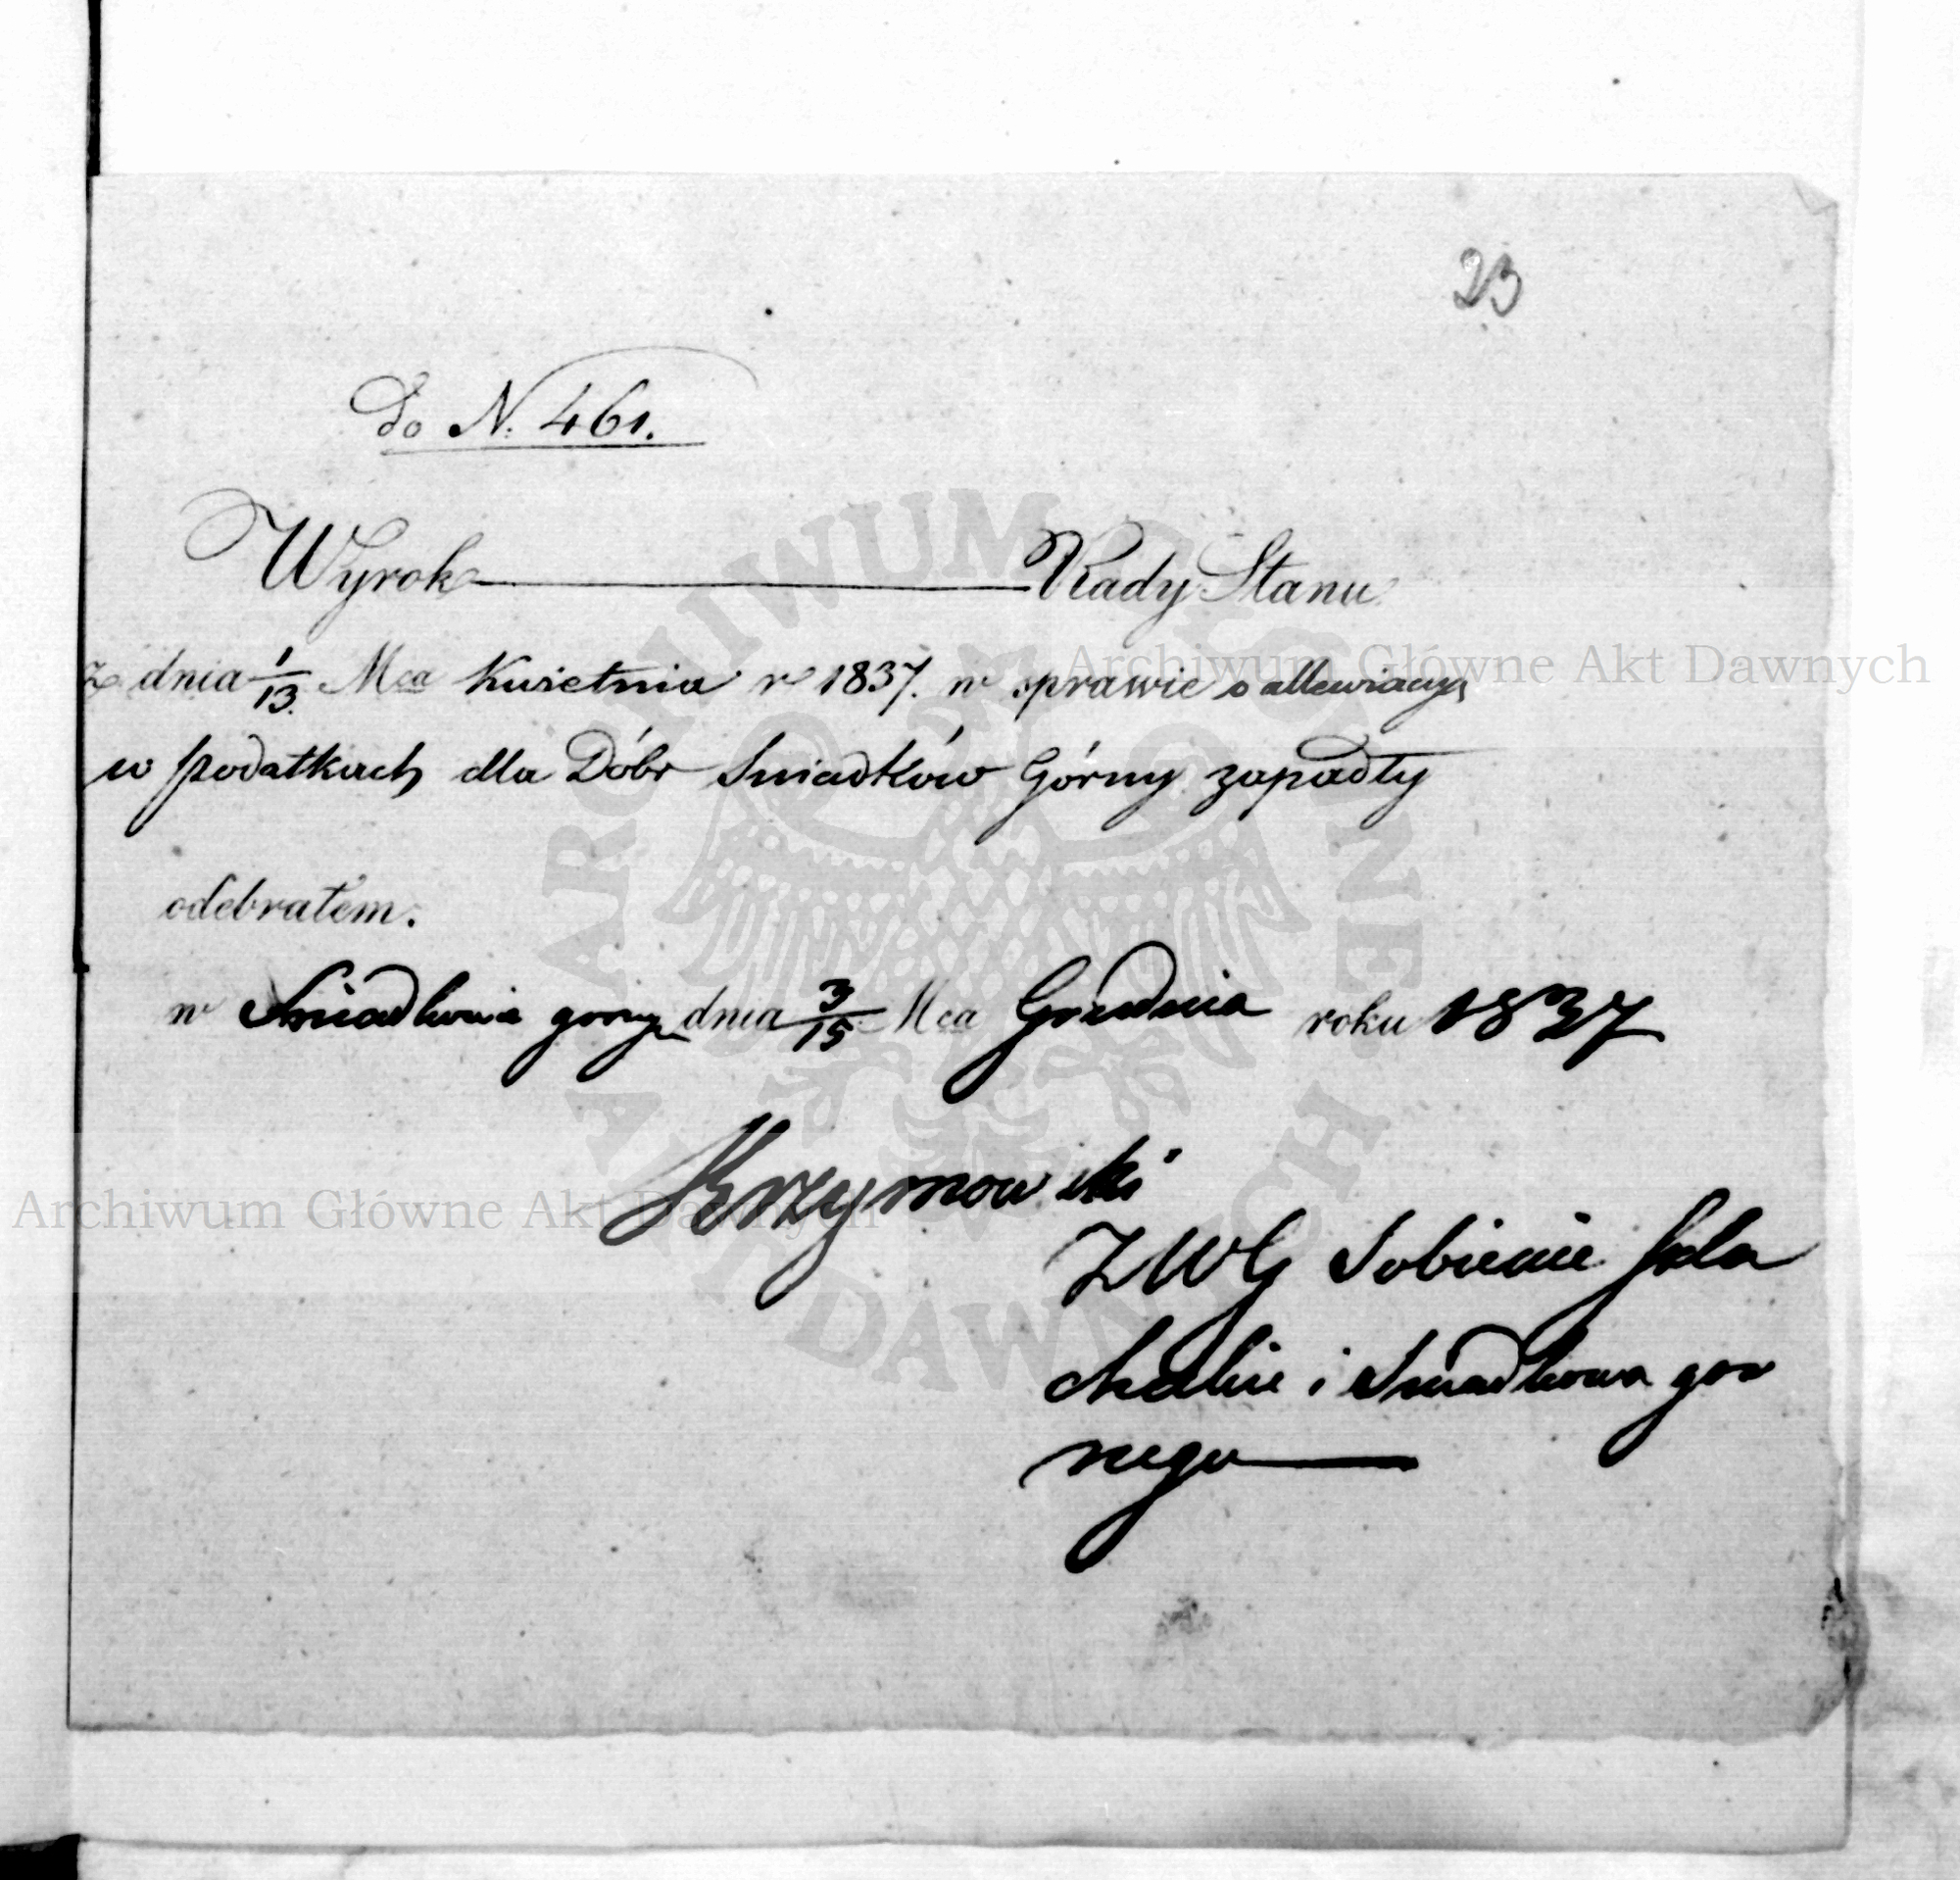 23
Do N. 461.
Wyrok Rady Stanu
z dnia 1/13. Mca Kwietnia r 1837. w sprawie o allewiacyą
w podatkach dla Dóbr Sniadków Górny zapadły
odebrałem.
w Sniadkowie gorny dnia 3/15 Mca Grudnia roku 1837
Krzymowski
ZWG Sobienie Szla
checkie i Sniadkowa gor
nego
ARCHIWUM GŁÓWNE AKT DAWNYCH
Archiwum Główne Akt Dawnych
Archiwum Główne Akt Dawnych